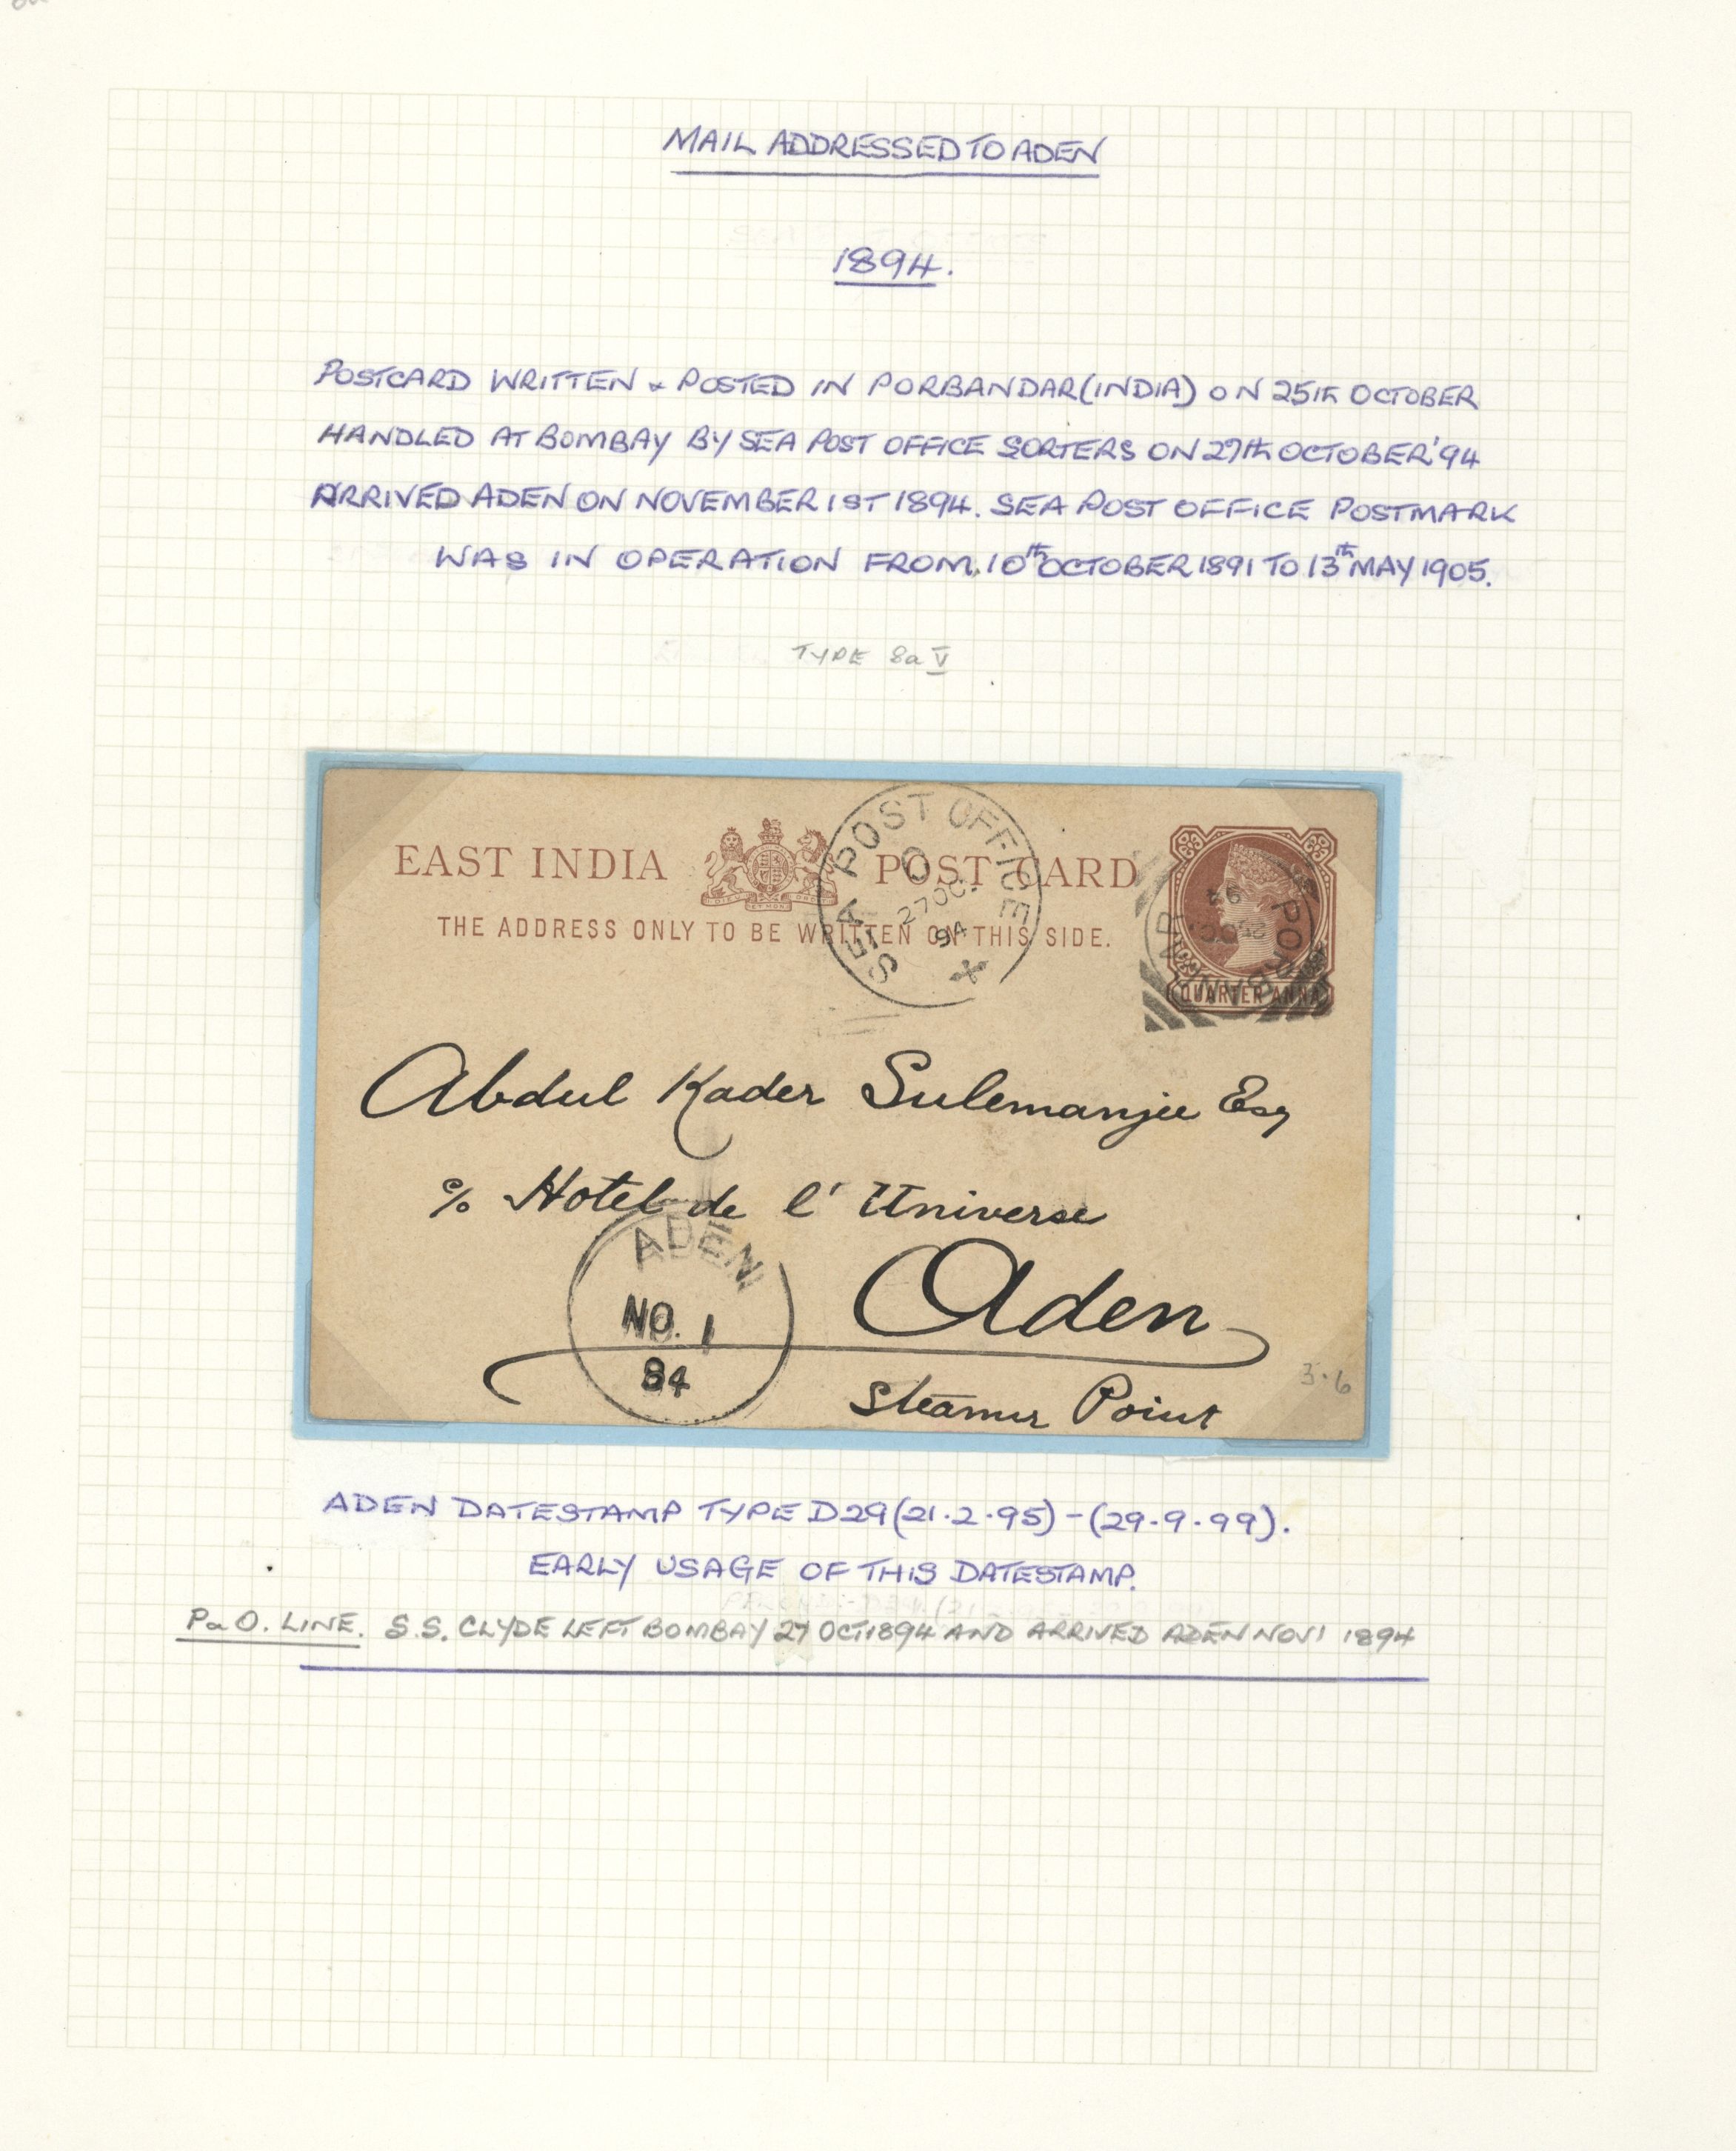 MAIL ADDRESSED TO ADEN
1894.
POSTCARD WRITTEN & POSTED IN PORBANDAR (INDIA) ON 25th OCTOBER
HANDLED AT BOMBAY BY SEA POST OFFICE SORTERS ON 27th OCTOBER '94
ARRIVED ADEN ON NOVEMBER 1ST 1894. SEA POST OFFICE POSTMARK
WAS IN OPERATION FROM 10th OCTOBER 1891 TO 13th MAY 1905.
TYPE 8a V
EAST INDIA POST CARD
THE ADDRESS ONLY TO BE WRITTEN ON THIS SIDE.
SEA POST OFFICE
C
27 OC.
94
94
QUARTER ANNA
Abdul Kader Sulemanjee Esq
c/o Hotel de l'Universe
Aden
Steamer Point
ADEN
NO. 1
84
3.6
ADEN DATESTAMP TYPE D29 (21.2.95) - (29.9.99).
EARLY USAGE OF THIS DATESTAMP.
P & O. LINE. S.S. CLYDE LEFT BOMBAY 27 OCT 1894 AND ARRIVED ADEN NOV 1 1894